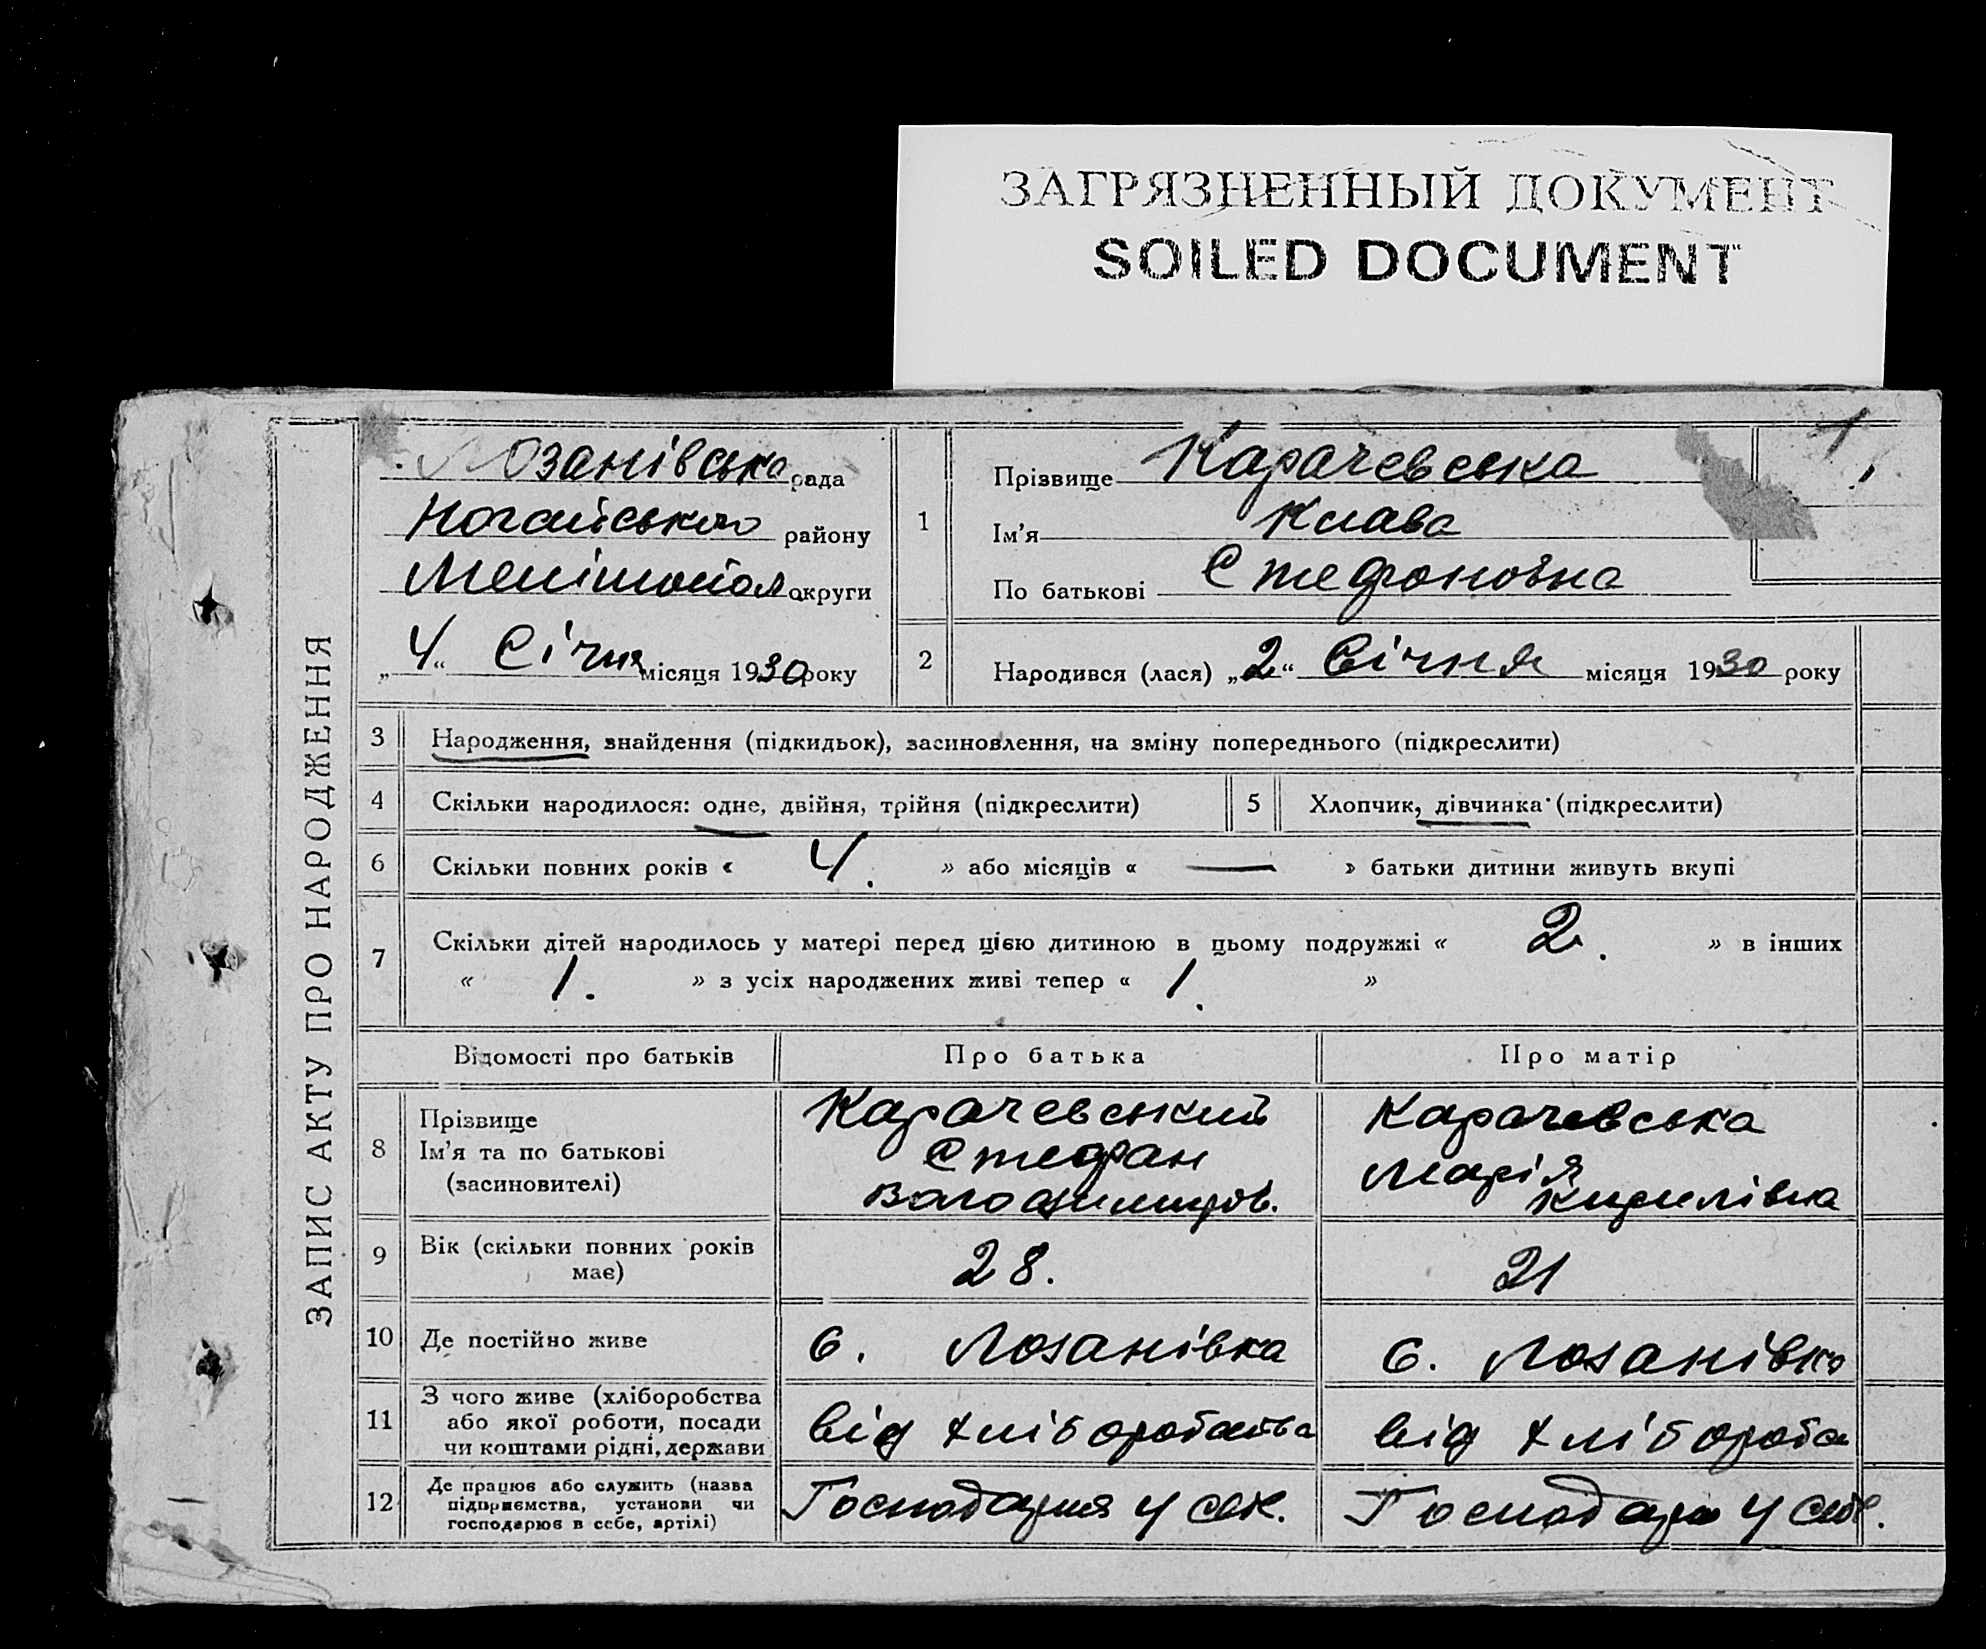 ЗАГРЯЗНЕННЫЙ ДОКУМЕНТ
SOILED DOCUMENT
ЗАПИС АКТУ ПРО НАРОДЖЕННЯ
Лозанівська рада
Ногайського району
Мелітопол округи
„4“ Січня місяця 1930 року
1
1 Прізвище Карачевська
Ім'я Клава
По батькові Стефановна
2 Народився (лася) „2“ Січня місяця 1930 року
3 Народження, знайдення (підкидьок), засиновлення, на зміну попереднього (підкреслити)
4 Скільки народилося: одне, двійня, трійня (підкреслити) 5 Хлопчик, дівчинка (підкреслити)
6 Скільки повних років « 4. » або місяців « — » батьки дитини живуть вкупі
7 Скільки дітей народилось у матері перед цією дитиною в цьому подружжі « 2. » в інших
« 1. » з усіх народжених живі тепер « 1. »
Відомості про батьків Про батька Про матір
8 Прізвище
Ім'я та по батькові
(засиновителі)
Карачевський
Стефан
Володимиров.
Карачевська
Марія
Кирилівна
9 Вік (скільки повних років
має)
28. 21
10 Де постійно живе с. Лозанівка с. Лозанівка
11 З чого живе (хліборобства
або якої роботи, посади
чи коштами рідні, держави
від хліборобства від хлібороба
12 Де працює або служить (назва
підприємства, установи чи
господарює в себе, артілі)
Господарня у себе. Господарь у себе.